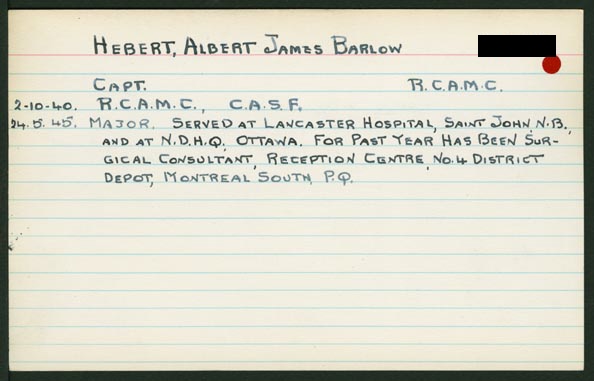 HEBERT, ALBERT JAMES BARLOW
CAPT. R.C.A.M.C.
2-10-40. R.C.A.M.C., C.A.S.F.
24.5.45. MAJOR. SERVED AT LANCASTER HOSPITAL, SAINT JOHN N.B.,
AND AT N.D.H.Q. OTTAWA. FOR PAST YEAR HAS BEEN SUR-
GICAL CONSULTANT, RECEPTION CENTRE, NO.4 DISTRICT
DEPOT, MONTREAL SOUTH, P.Q.